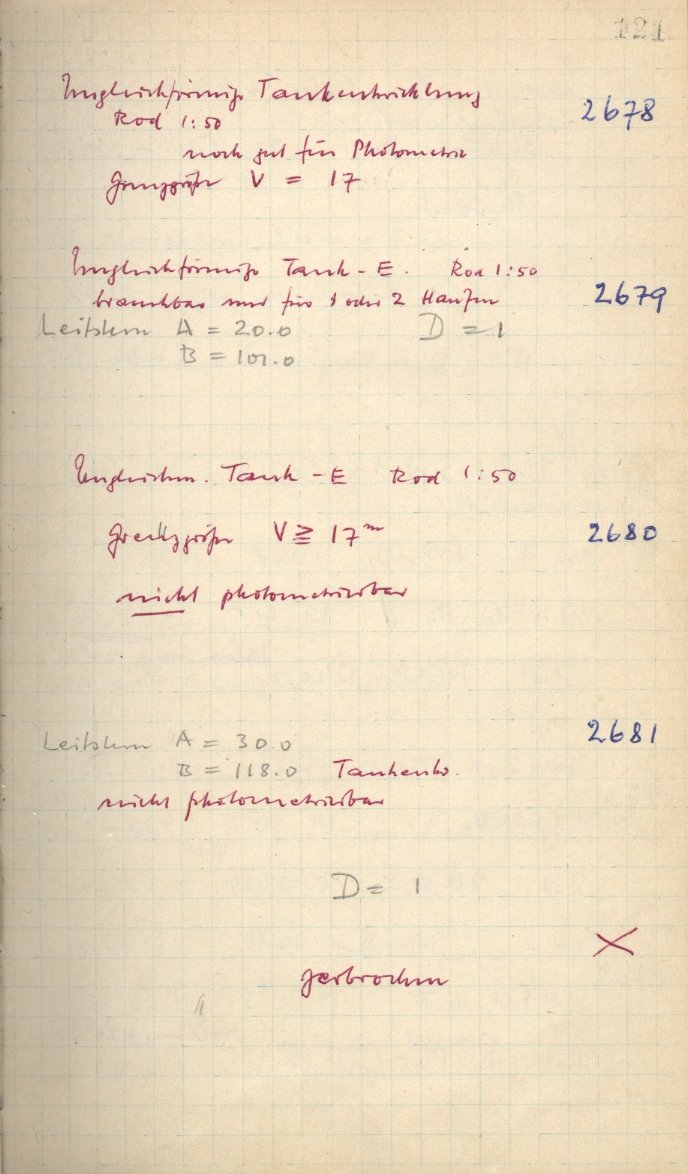 121
Ungleichförmige Tankentwicklung
2678
Rod 1:50
noch gut für Photometrie
Grenzgröße V = 17
Ungleichförmige Tank-E. Rod 1:50
brauchbar nur für 1 oder 2 Haufen
2679
Leitstern A = 20.0 D = 1
B = 101.0
Ungleichm. Tank-E Rod 1:50
Grenzgröße V ≧ 17ᵐ
2680
nicht photometrierbar
2681
Leitstern A = 30.0
B = 118.0 Tankentw.
nicht photometrierbar
D = 1
X
zerbrochen